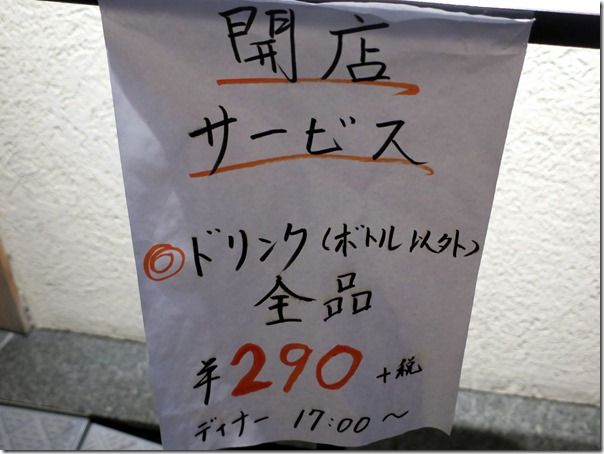 開店
サービス
◎ドリンク(ボトル以外)
全品
¥290+税
ディナー 17:00~